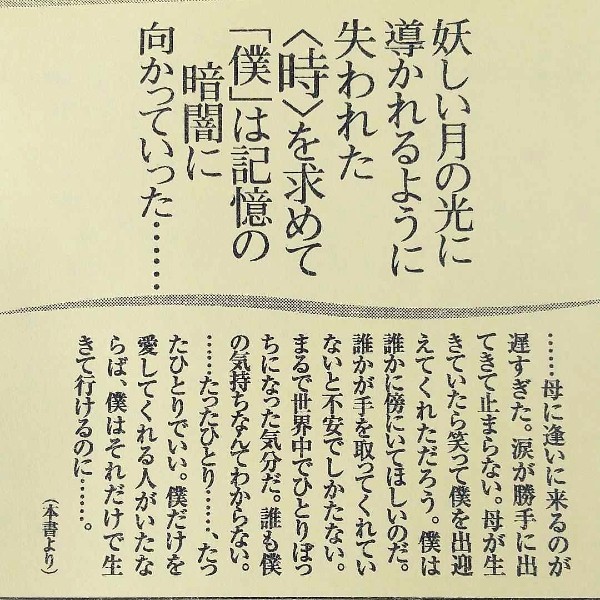 妖しい月の光に
導かれるように
失われた
〈時〉を求めて
「僕」は記憶の
暗闇に
向かっていった……
……母に逢いに来るのが
遅すぎた。涙が勝手に出
てきて止まらない。母が生
きていたら笑って僕を出迎
えてくれただろう。僕は
誰かに傍にいてほしいのだ。
誰かが手を取ってくれてい
ないと不安でしかたない。
まるで世界中でひとりぼっ
ちになった気分だ。誰も僕
の気持ちなんてわからない。
……たったひとり……、たっ
たひとりでいい。僕だけを
愛してくれる人がいたな
らば、僕はそれだけで生
きて行けるのに……。
（本書より）